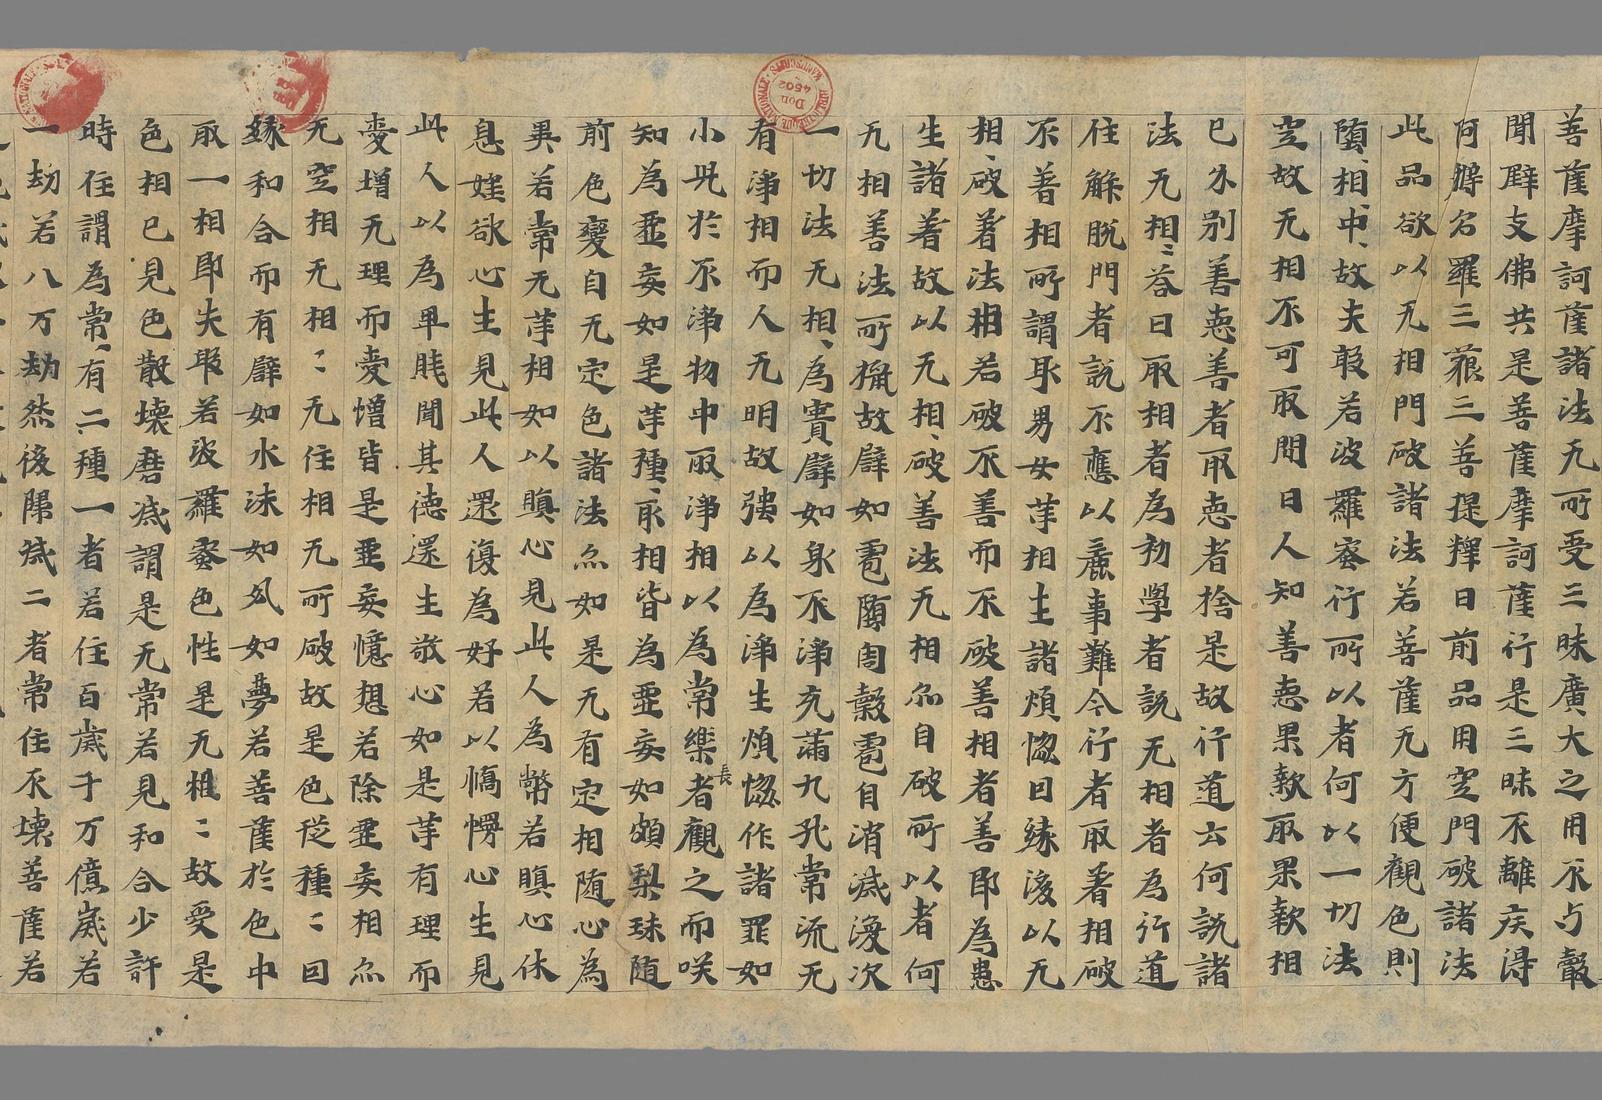 善薩摩訶薩諸法无所受三昧廣大之用不与聲
聞辟支佛共是善薩摩訶薩行是三昧不離疾得
阿耨多羅三藐三菩提釋曰前品用空門破諸法
此品欲以无相門破諸法若菩薩无方便觀色則
墮相中故夫般若波羅蜜行所以者何以一切法
空故无相不可取問曰人知善惡果報取果報相
已分別善惡善者取惡者捨是故行道云何說諸
法无相〻荅曰取相者為初學者說无相者為行道
住解脫門者說不應以麁事難令行者取著相破
不著相所謂取男女等相生諸煩惱因緣後以无
相破著法相若破不善而不破善相者善即為患
生諸著故以无相破善法无相亦自破所以者何
无相善法所攝故譬如雹隨害穀雹自消滅復次
一切法无相為實譬如身不淨充滿九孔常流无
有淨相而人无明故強以為淨生煩惱作諸罪如
小兒於不淨物中取淨相以為常樂長者觀之而咲
知為虛妄如是等種〻取相皆為虛妄如頗梨珠隨
前色變自无定色諸法亦如是无有定相隨心為
異若常无等相如以瞋心見此人為弊若瞋心休
息婬欲心生見此人還復為好若以憍慢心生見
此人以為卑賤聞其德還生敬心如是等有理而
愛增无理而憂憎皆是虛妄憶想若除虛妄相亦
无空相无相〻无住相无可破故是色從種〻因
緣和合而有譬如水沫如風如夢若善薩於色中
取一相即失般若波羅蜜色性是无相〻故受是
色相已見色散壞磨滅謂是无常若見和合少許
時住謂為常有二種一者若住百歲千万億歲若
一劫若八万劫然後歸滅二者常住不壞善薩若